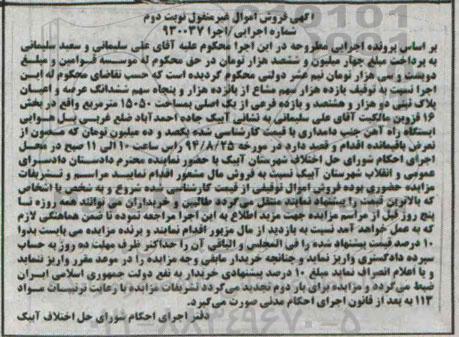 آگهی فروش اموال غیرمنقول نوبت دوم
شماره اجرایی/اجرا ۹۳۰۰۳۷
بر اساس پرونده اجرایی مطروحه در این اجرا محکوم علیه آقای علی سلیمانی و سعید سلیمانی
به پرداخت مبلغ چهار میلیون و ششصد هزار تومان در حق محکوم له موسسه قوامین و مبلغ
دویست و سی هزار تومان نیم عشر دولتی محکوم گردیده است که حسب تقاضای محکوم له این
اجرا نسبت به توقیف یازده هزار سهم مشاع از پانزده هزار و پنجاه سهم ششدانگ عرصه و اعیان
پلاک ثبتی دو هزار و هشتصد و یازده فرعی از یک اصلی بمساحت ۱۵۰۵۰ مترمربع واقع در بخش
۱۶ قزوین مالکیت آقای علی سلیمانی به نشانی آبیک جاده احمدآباد ضلع غربی پل هوایی
ایستگاه راه آهن جنب دامداری با قیمت کارشناسی شده یکصد و ده میلیون تومان که مصون از
تعرض باقیمانده اقدام و قصد دارد در مورخه ۹۴/۸/۲۵ راس ساعت ۱۰ الی ۱۱ صبح در محل
اجرای احکام شورای حل اختلاف شهرستان آبیک با حضور نماینده محترم دادستان دادسرای
عمومی و انقلاب شهرستان آبیک نسبت به فروش مال مشعور اقدام نمایند مراسم و تشریفات
مزایده حضوری بوده فروش اموال توقیفی از قیمت کارشناسی شده شروع و به شخص یا اشخاص
که بالاترین قیمت را پیشنهاد نمایند منتقل می‌گردد طالبین و خریداران می توانند همه روزه تا
پنج روز قبل از مراسم مزایده جهت مزید اطلاع به این اجرا مراجعه نموده تا ضمن هماهنگی لازم
که به عمل خواهد آمد نسبت به بازدید از مال مزبور اقدام نمایند و برنده مزایده می بایست بدوا
۱۰ درصد قیمت پیشنهاد شده را فی المجلس و الباقی آن را حداکثر ظرف مهلت ده روز به حساب
سپرده دادگستری واریز نماید و چنانچه خریدار مابقی وجه مزایده را در موعد مقرر واریز ننماید
و یا اعلام انصراف نماید مبلغ ۱۰ درصد پیشنهادی خریدار به نفع دولت جمهوری اسلامی ایران
ضبط می‌گردد و مزایده برای بار دوم تجدید می‌گردد تشریفات مزایده با رعایت ترتیبات مواد
۱۱۳ به بعد از قانون اجرای احکام مدنی صورت می‌گیرد.
دفتر اجرای احکام شورای حل اختلاف آبیک
۰۲۱-۸۸۳۴۹۶۷۰-۵